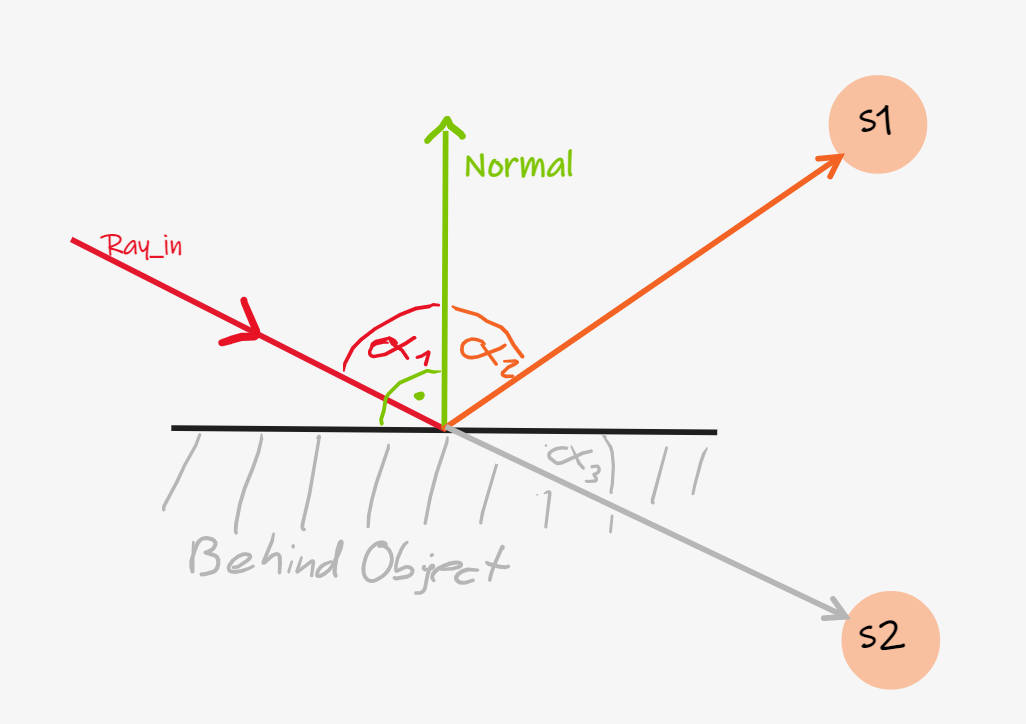 s1
Normal
Ray_in
α1
α2
α3
Behind Object
s2